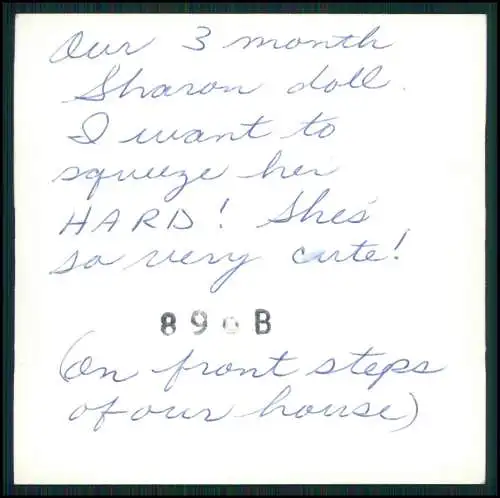 Our 3 month
Sharon doll.
I want to
squeeze her
HARD! She's
so very cute!
890B
(on front steps
of our house)